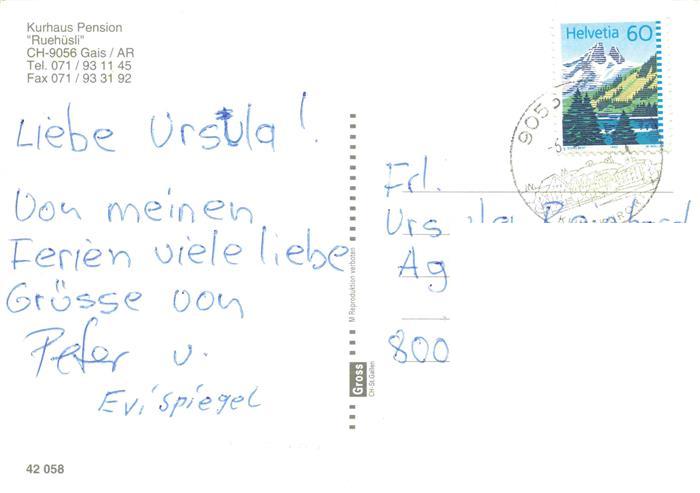 Kurhaus Pension
"Ruehüsli"
CH-9056 Gais / AR
Tel. 071 / 93 11 45
Fax 071 / 93 31 92
Liebe Ursula!
Von meinen
Ferien viele liebe
Grüsse von
Peter u.
Evi Spiegel
42 058
M Reproduktion verboten
Gross
CH-St.Gallen
Helvetia 60
9053
Frl.
Urs
Ag
800